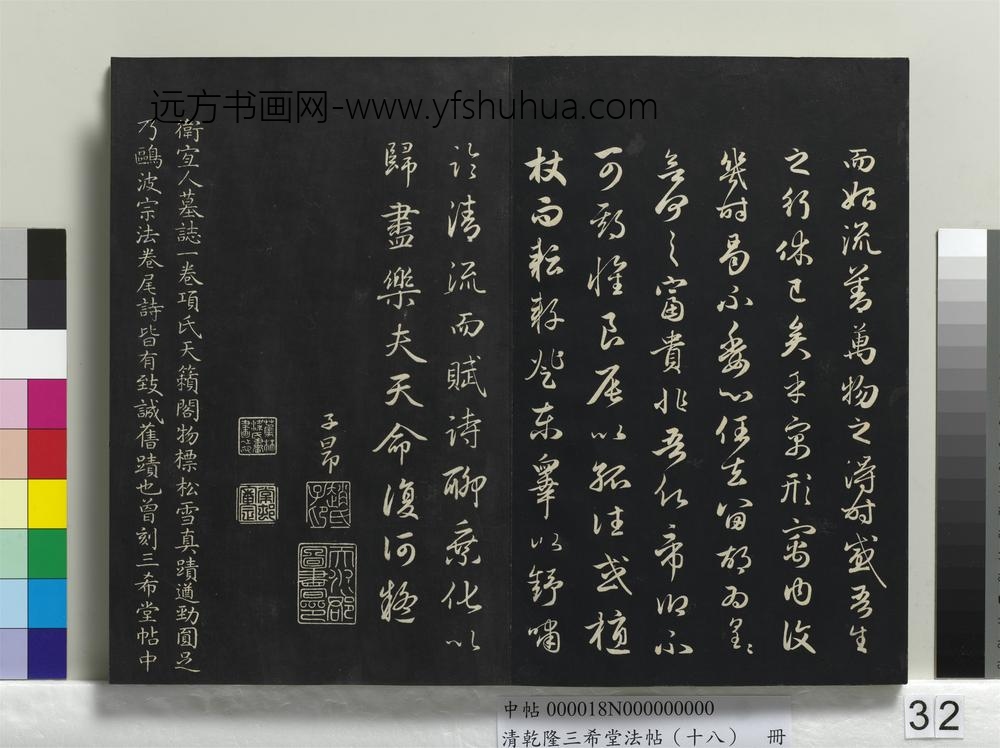 远方书画网-www.yfshuhua.com
而始流善萬物之得時感吾生
之行休已矣乎寓形寓內復
幾時曷不委心任去留胡為皇〻
何之富貴非吾願帝鄉不
可期懷良辰以孤往或植
杖而耘耔登東皋以舒嘯
臨清流而賦詩聊乘化以
歸盡樂夫天命復何疑
子昂
趙氏子昂
天水郡圖書印
棠邨審定
衛宜人墓誌一卷項氏天籟閣物標松雪真蹟遒勁圓足
乃鷗波宗法卷尾詩皆有致誠舊蹟也曾刻三希堂帖中
中帖 000018N000000000
清乾隆三希堂法帖（十八） 冊
32